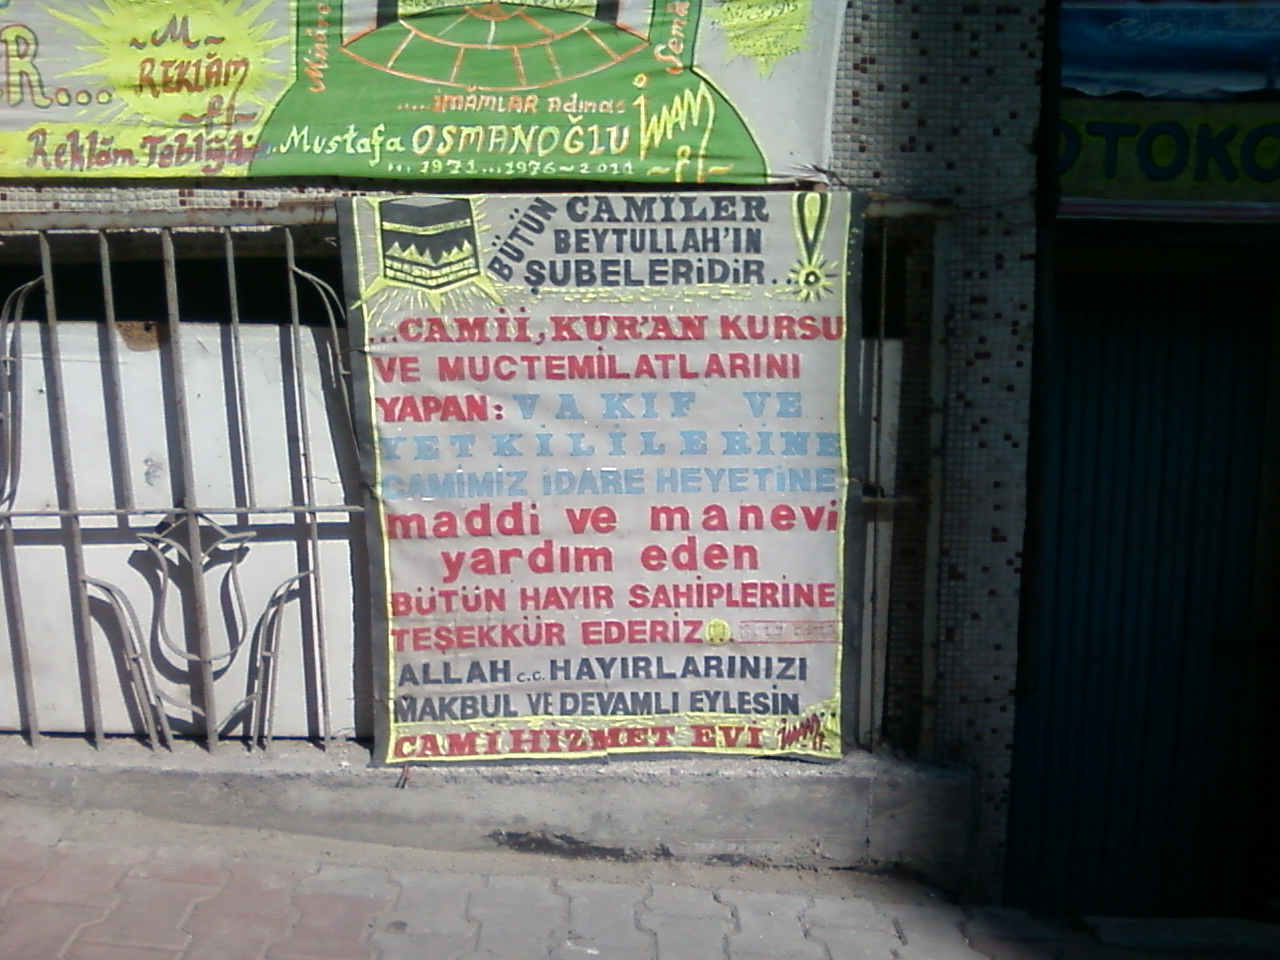 R...
~M~
REKLÂM
Reklâm Tebliğdir..
.....İMAMLAR Adına:
Mustafa OSMANOĞLU
imam
...1971....1976~2011
OTOKO
BÜTÜN CAMİLER
BEYTULLAH'IN
ŞUBELERİDİR...!
...CAMİİ, KUR'AN KURSU
VE MUCTEMİLATLARINI
YAPAN: VAKIF VE
YETKİLİLERİNE
CAMİMİZ İDARE HEYETİNE
maddi ve manevi
yardım eden
BÜTÜN HAYIR SAHİPLERİNE
TEŞEKKÜR EDERİZ...
ALLAH c.c. HAYIRLARINIZI
MAKBUL VE DEVAMLI EYLESİN
CAMİ HİZMET EVİ